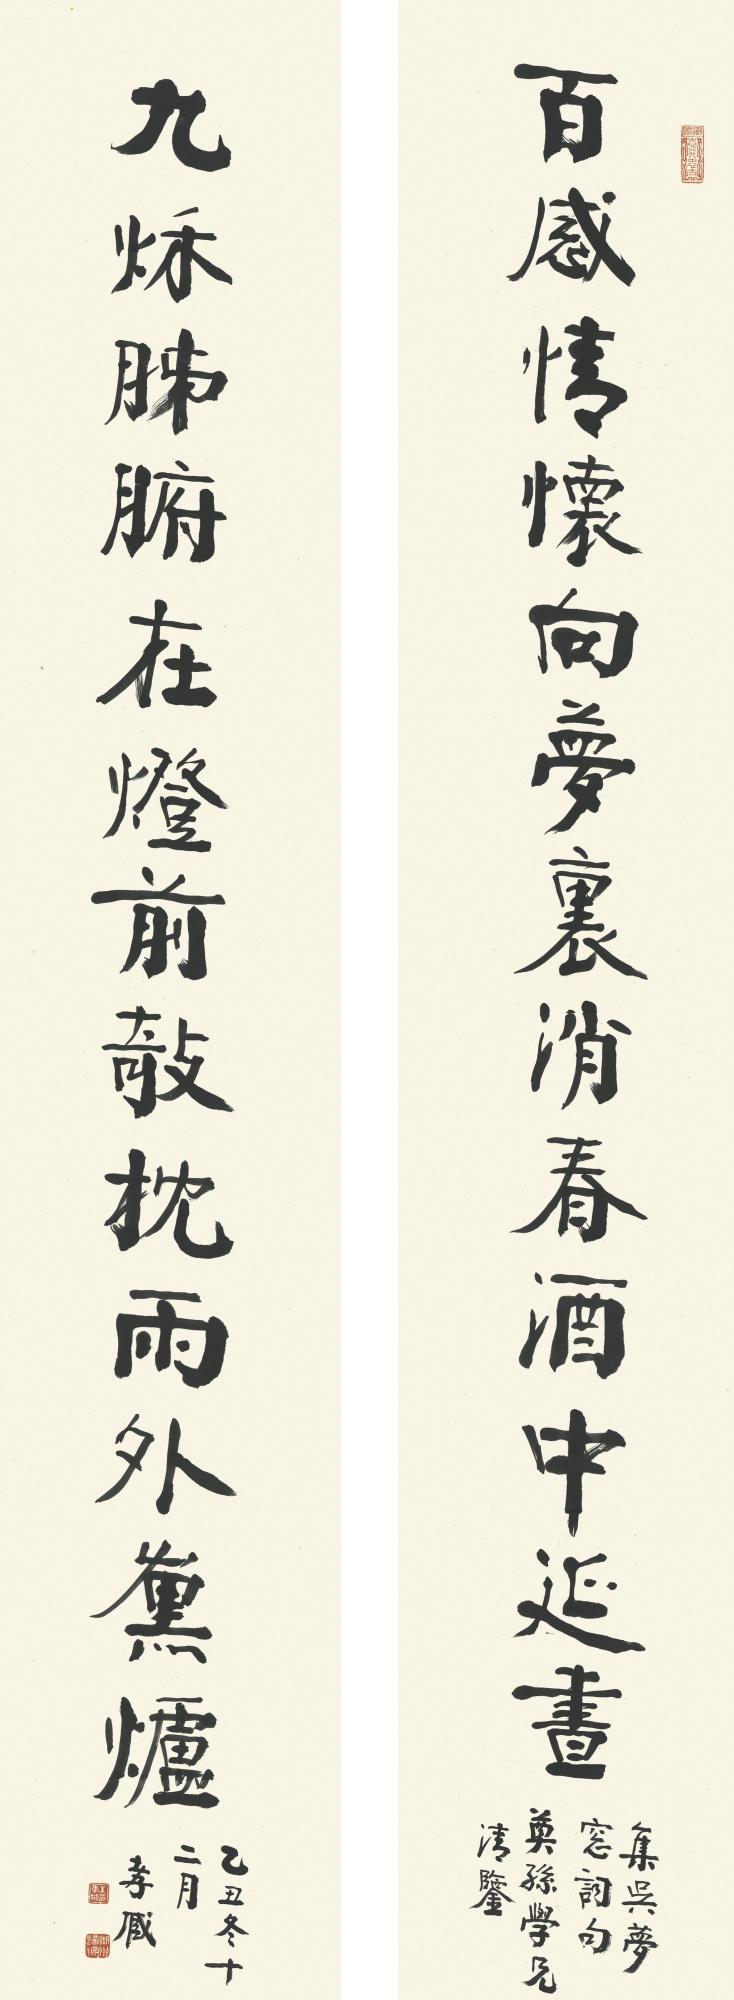 百感情懷向夢裏消春酒中延晝
集吳夢
窓詞句
孫學兄
清鑒
九秌肺腑在燈前敧枕雨外熏爐
乙丑冬十
二月
孝臧